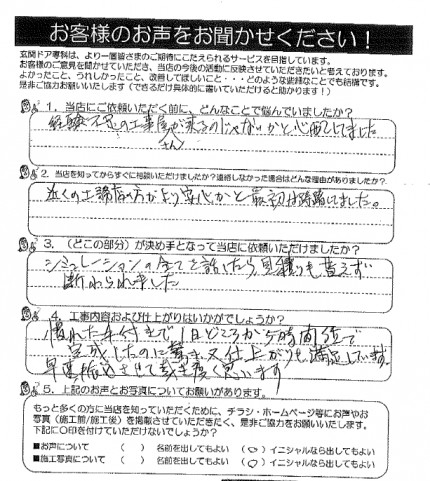 お客様のお声をお聞かせください！
玄関ドア専科は、より一層皆さまのご期待にこたえられるサービスを目指しています。
お客様のご意見を聞かせていただき、当店の今後の活動に反映させていただきたいと考えております。
よかったこと、うれしかったこと、改善してほしいこと・・・どのような些細なことでも結構です。
是非ご協力お願いいたします（できるだけ具体的に書いていただけると助かります！）
1. 当店にご依頼いただく前に、どんなことで悩んでいましたか？
経験不足の工事屋さんが来るのじゃないかと心配してました
2. 当店を知ってからすぐに相談いただけましたか？連絡しなかった場合はどんな理由がありましたか？
近くの工務店の方がより安心かと最初は躊躇してました。
3. （どこの部分）が決め手となって当店に依頼いただけましたか？
シミュレーションの全てを話したら見積りも
断わられました
4. 工事内容および仕上がりはいかがでしょうか？
慣れた手付きで1日どころか5時間位で
完成したのに驚き又仕上がりも満足しています。
させて
思います
5. 上記のお声とお写真についてお願いがあります。
もっと多くの方に当店を知っていただくために、チラシ・ホームページ等にお声やお
写真（施工前/施工後）を掲載させていただきたく、是非ご協力をお願いいたします。
下記に〇印を付けていただけないでしょうか？
■お声について （ ） 名前を出してもよい （○）イニシャルなら出してもよい
■施工写真について （ ） 名前を出してもよい （○）イニシャルなら出してもよい